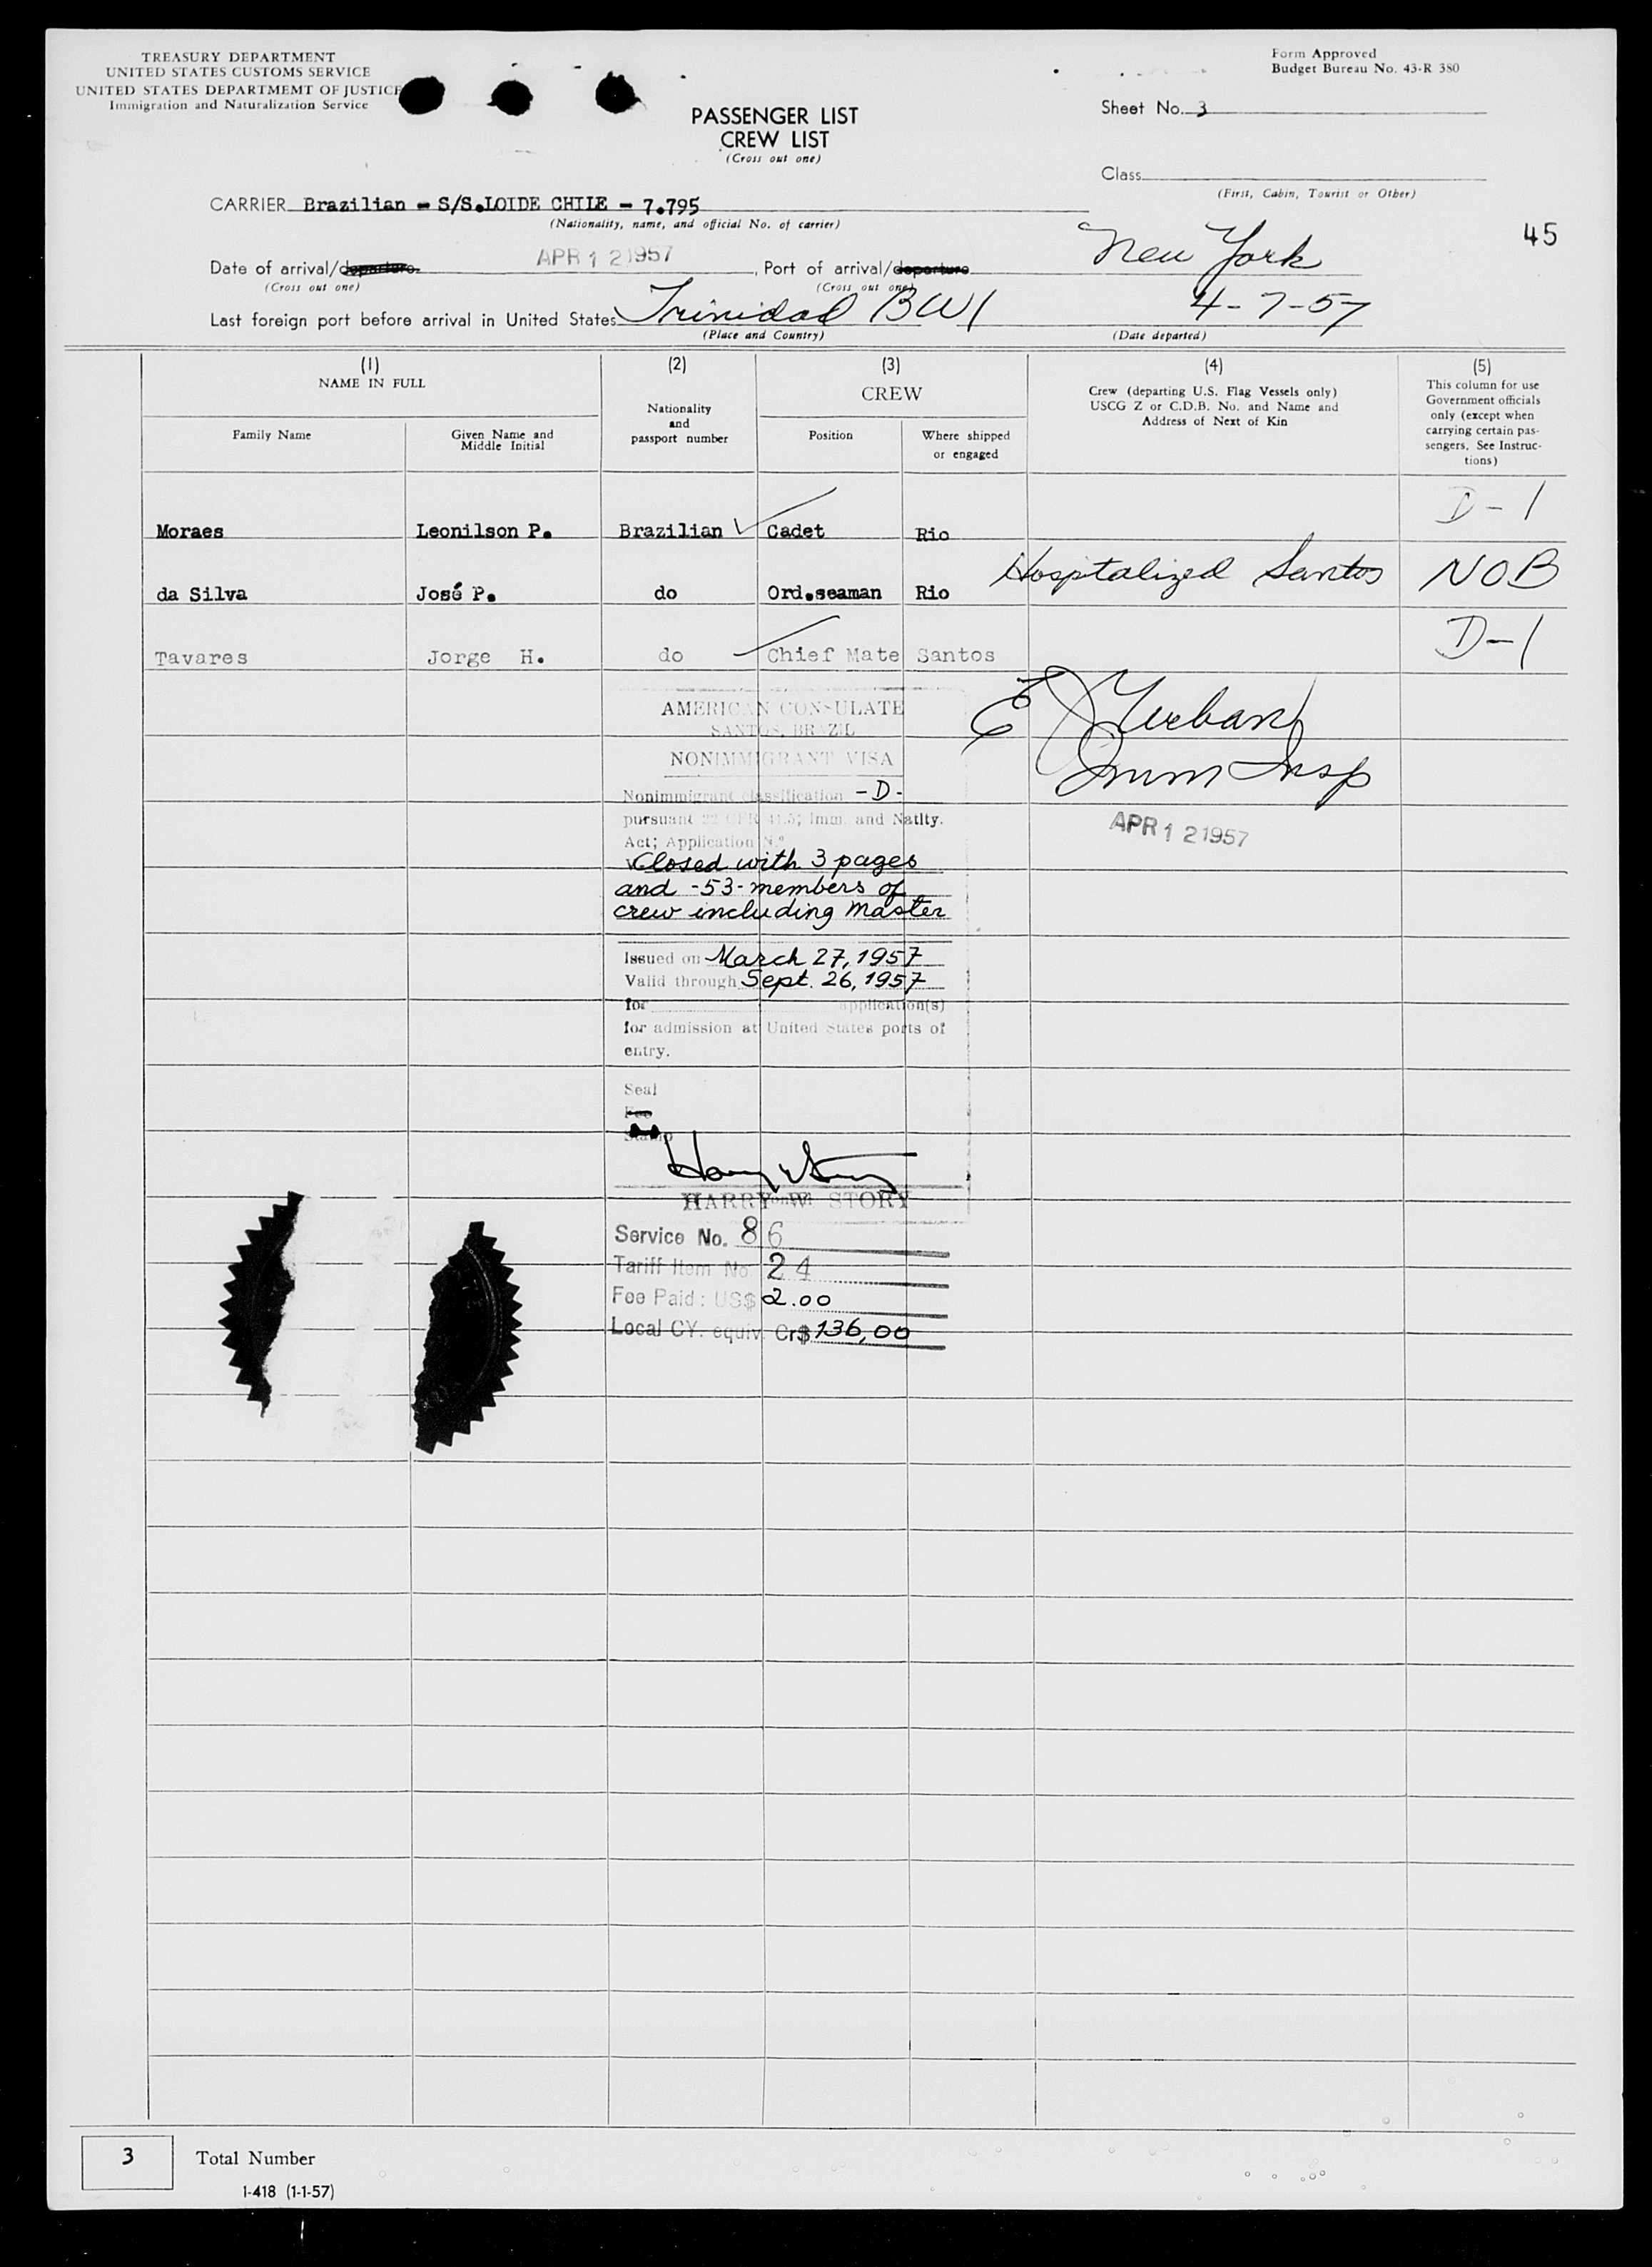 TREASURY DEPARTMENT
UNITED STATES CUSTOMS SERVICE
UNITED STATES DEPARTMEMT OF JUSTICE
Immigration and Naturalization Service
Form Approved
Budget Bureau No. 43-R 380
PASSENGER LIST
CREW LIST
(Cross out one)
Sheet No. 3
Class
(First, Cabin, Tourist or Other)
CARRIER Brazilian - S/S.LOIDE CHILE - 7.795
(Nationality, name, and official No. of carrier)
45
Date of arrival/departure APR 12 1957, Port of arrival/departure New York
(Cross out one) (Cross out one)
Last foreign port before arrival in United States Trinidad BWI 4-7-57
(Place and Country) (Date departed)
(1) (2) (3) (4) (5)
NAME IN FULL
Family Name
Given Name and
Middle Initial
Nationality
and
passport number
CREW
Position
Where shipped
or engaged
Crew (departing U.S. Flag Vessels only)
USCG Z or C.D.B. No. and Name and
Address of Next of Kin
This column for use
Government officials
only (except when
carrying certain pas-
sengers. See Instruc-
tions)
Moraes Leonilson P. Brazilian Cadet Rio D-1
da Silva José P. do Ord.seaman Rio Hospitalized Santos NOB
Tavares Jorge H. do Chief Mate Santos D-1
AMERICAN CONSULATE
SANTOS, BRAZIL
NONIMMIGRANT VISA
Nonimmigrant classification -D-
pursuant 22 CFR 41.5; Imm. and Natlty.
Act; Application N.º
Closed with 3 pages
and -53- members of
crew including Master
Issued on March 27, 1957
Valid through Sept. 26, 1957
for application(s)
for admission at United States ports of
entry.
Seal
Fee
Stamp
HARRY W. STORY
Service No. 86
Tariff Item No 24
Fee Paid: US$ 2.00
Local CY. equiv. Cr$ 136,00
Imm Insp
APR 12 1957
3 Total Number
I-418 (1-1-57)